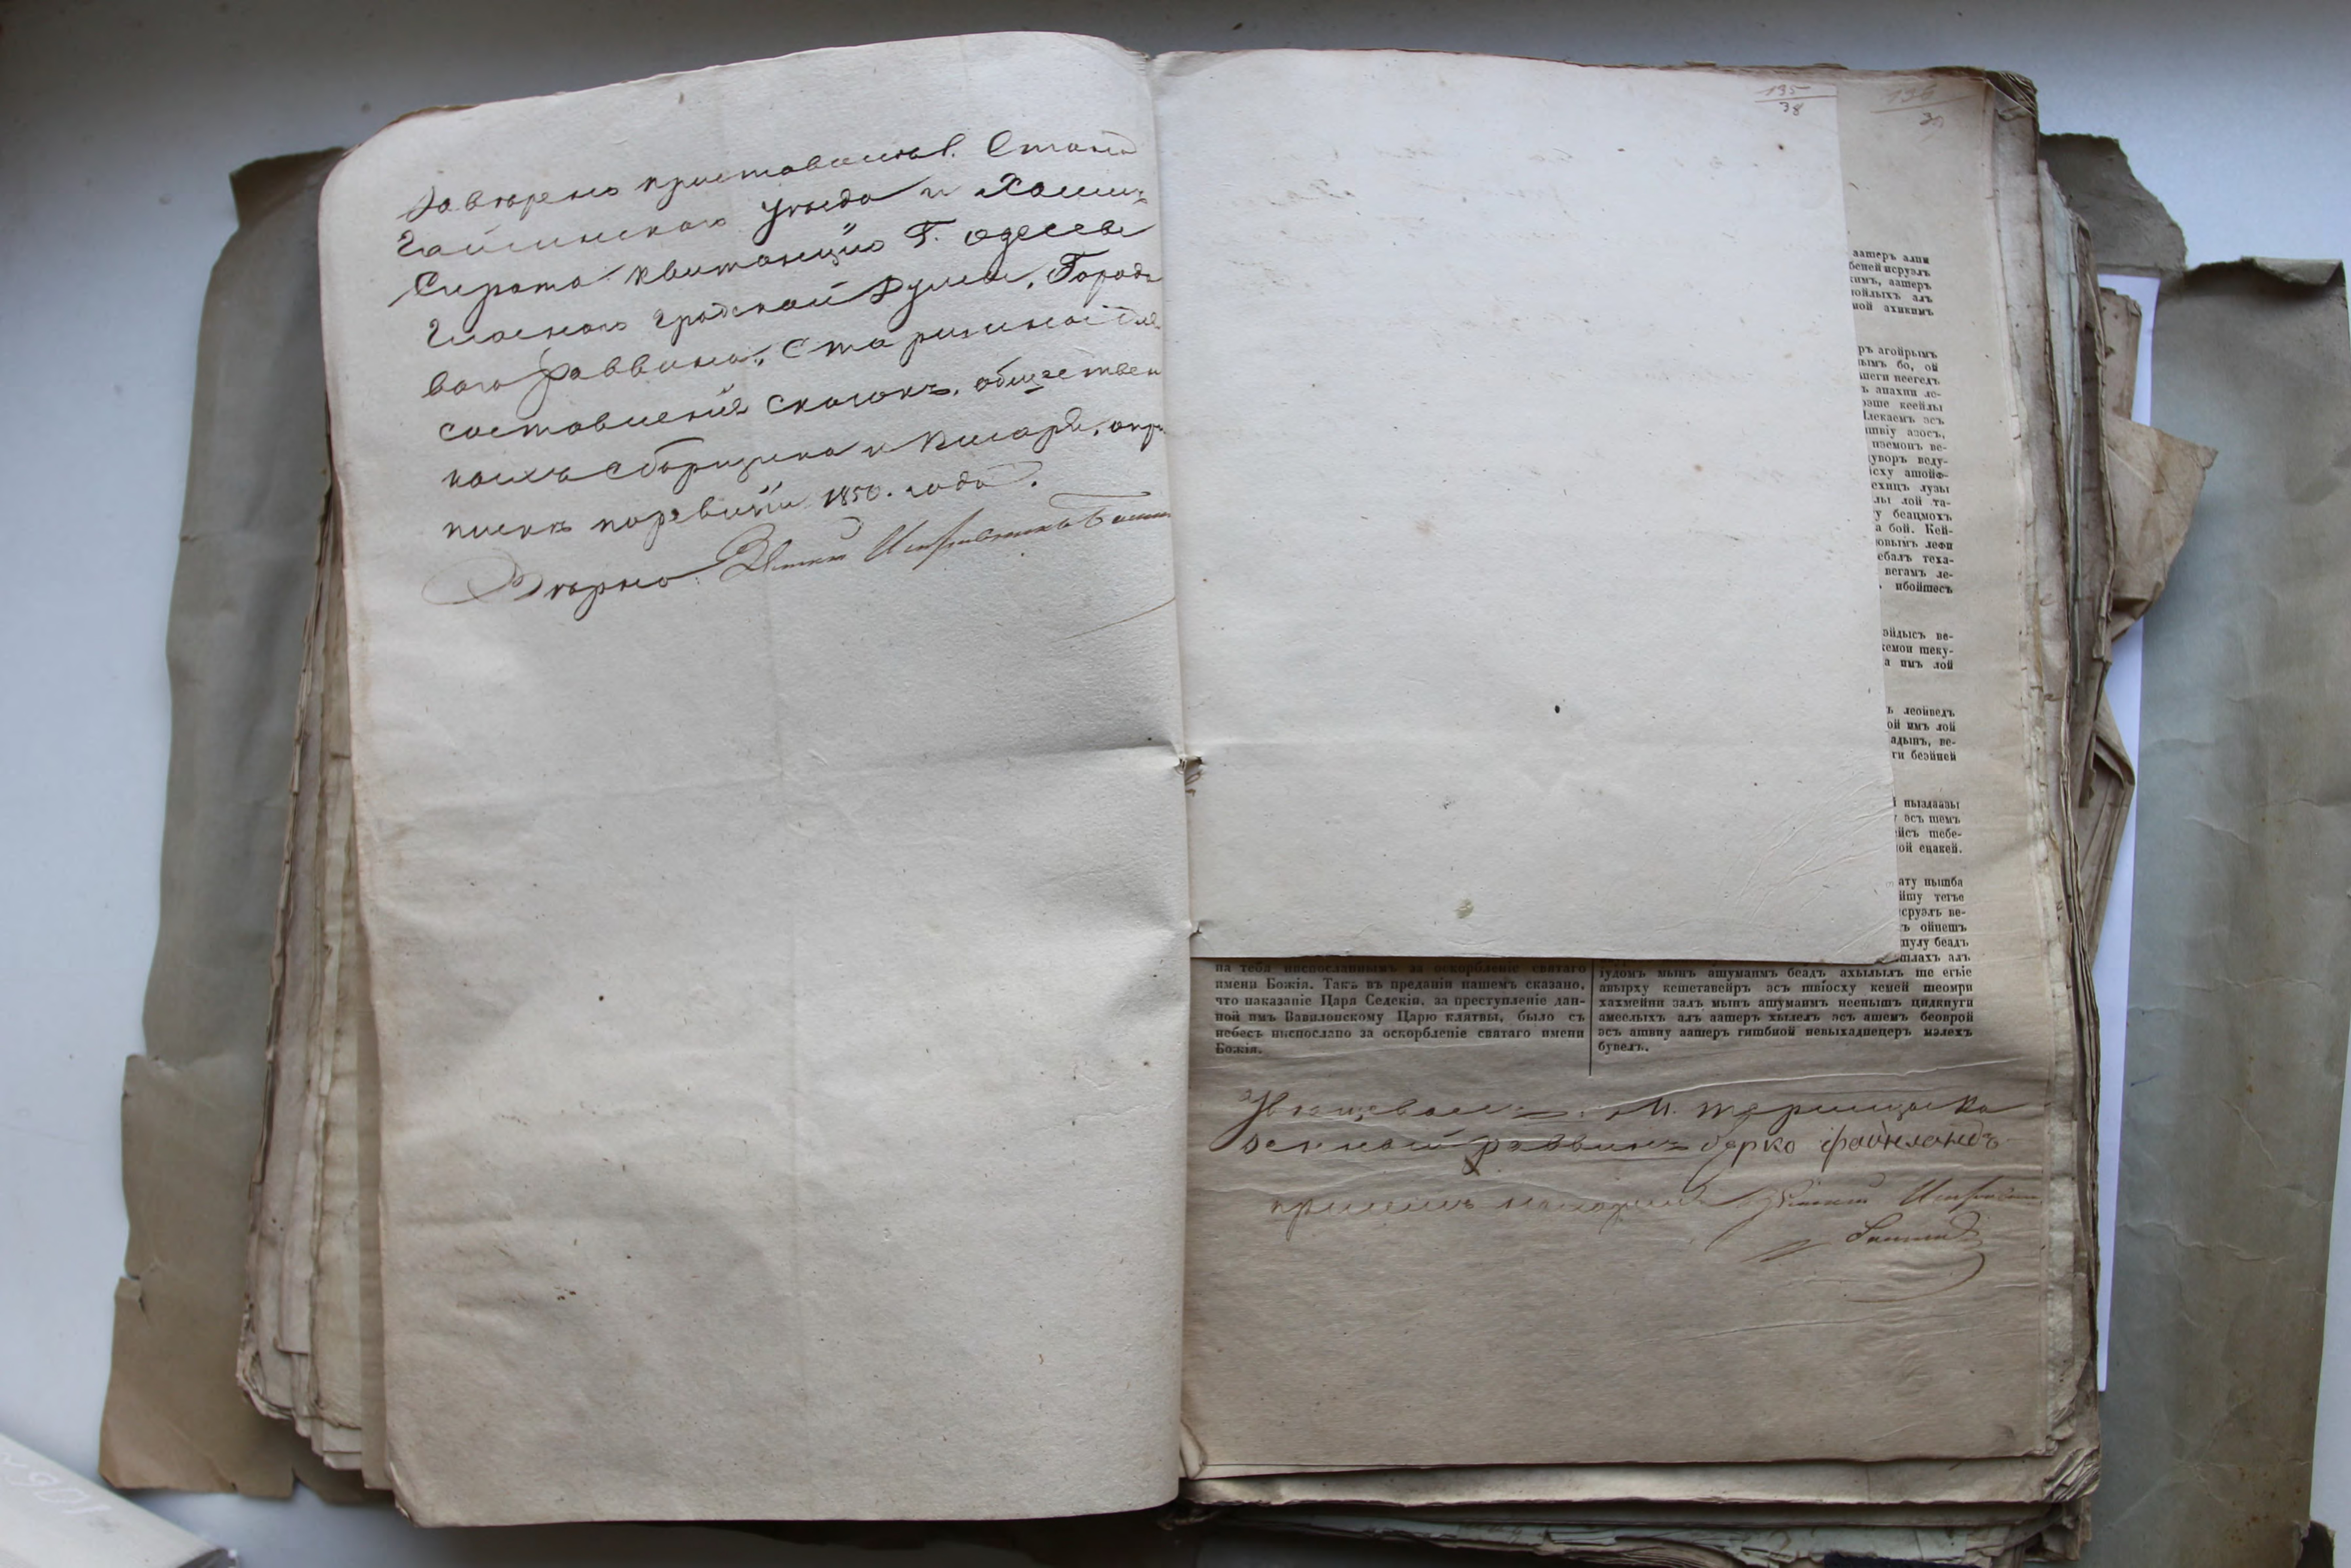 Заверено приставомъ 1. Стана
Гайсинскаго уѣзда и Хаима
Сирота квитанцію Г. Одессы
Гласнаго градской Думы, Город
ваго Раввина, Старшинъ для
составленія сказокъ, обществен
ныхъ сборщика и писаря, опри
писки по ревизіи 1850. года.
Вѣрно: Земскій Исправникъ
135
38
136
аашеръ алпи
беней исруэлъ
кимъ, аашеръ
ойлыхъ алъ
ной ахикимъ
ръ агойрымъ
нымъ бо, ой
шеги неегедъ
ъ анахни ле-
эше кеейлы
лекаемъ эсъ
швіу азосъ,
нэемонъ ве-
уворъ веду-
сху ашойф-
ехицъ лузы
лы лой та-
у беацмохъ
а бой. Кей-
овымъ лефи
ебалъ теха-
вегамъ ле-
ибойшесъ
эйдысъ ве-
кемои шеку-
а имъ лой
ъ леойведъ
ой имъ лой
адынъ, ве-
ги беэйней
ныздаазы
эсъ шемъ
йсъ шебе-
ой ецакей.
ату ныпба
йшу тегъе
сруэлъ ве-
ъ ойнешъ
пулу беадъ
шлахъ алъ
на тебя ниспосланнымъ за оскорбленіе святаго
имени Божія. Такъ въ преданіи нашемъ сказано,
что наказаніе Царя Седекіи, за преступленіе дан-
ной имъ Вавилонскому Царю клятвы, было съ
небесъ ниспослано за оскорбленіе святаго имени
Божія.
іудомъ мынъ ашумаимъ беадъ ахылылъ ше егъіе
авырху кешегавейръ эсъ швіосху кемей шеомри
хахмейни залъ мынъ ашумаимъ неенышъ цидкиуги
амеслыхъ алъ аашеръ хылелъ эсъ ашемъ беоврой
эсъ ашвиу аашеръ гишбиой невыхаднецеръ мэлехъ
бувелъ.
Увѣщевалъ: М. Терлицака
зенный раввинъ берко файнландъ
Земскій Исправник